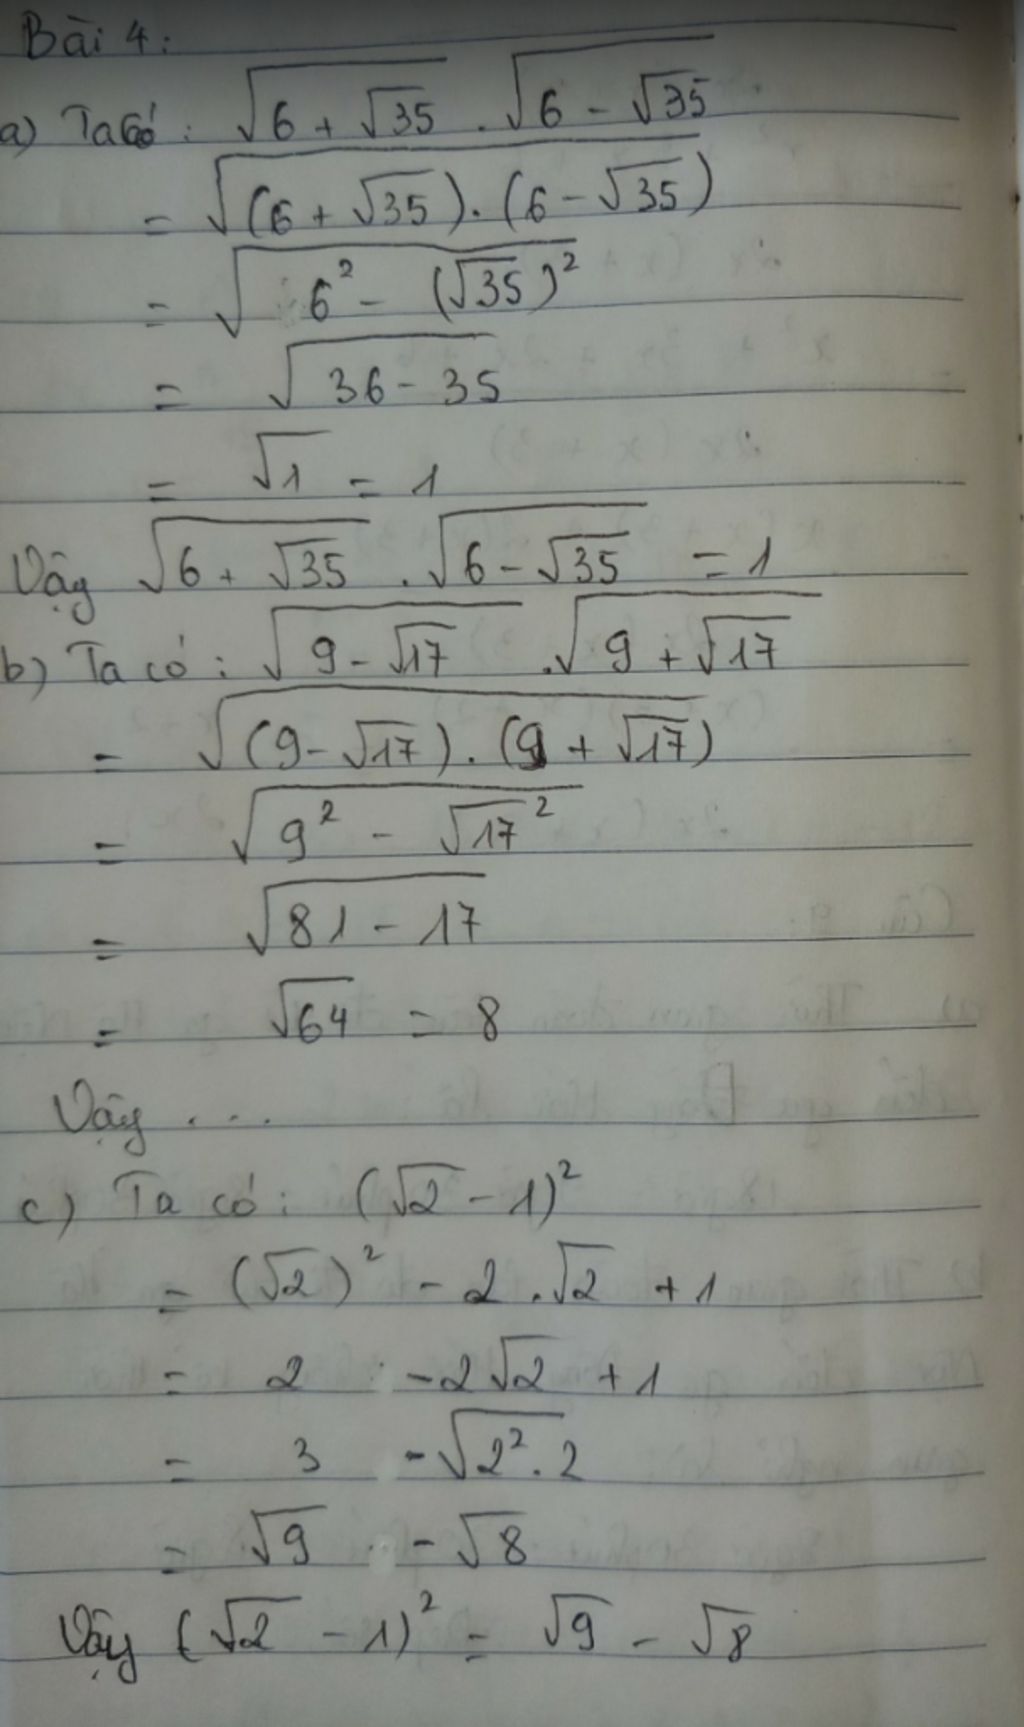 Bài 4:
a) Ta có: √(6 + √35) . √(6 - √35)
= √((6 + √35) . (6 - √35))
= √(6² - (√35)²)
= √(36 - 35)
= √1 = 1
Vậy √(6 + √35) . √(6 - √35) = 1
b) Ta có: √(9 - √17) . √(9 + √17)
= √((9 - √17) . (9 + √17))
= √(9² - √17²)
= √(81 - 17)
= √64 = 8
Vậy ....
c) Ta có: (√2 - 1)²
= (√2)² - 2 . √2 + 1
= 2 - 2√2 + 1
= 3 - √(2² . 2)
= √9 - √8
Vậy (√2 - 1)² = √9 - √8